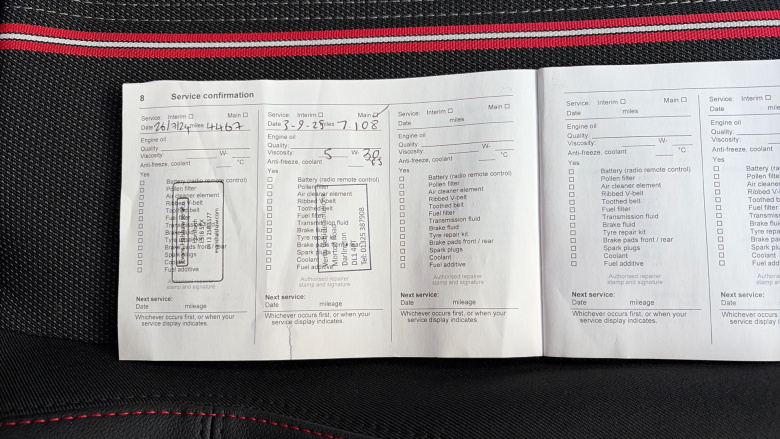 8 Service confirmation
Service: Interim ☐ Main ☐
Date 26/7/24 miles 4467
Engine oil
Quality:
Viscosity: W-
Anti-freeze, coolant °C
Yes
☐ Battery (radio remote control)
☐ Pollen filter
☐ Air cleaner element
☐ Ribbed V-belt
☐ Toothed belt
☐ Fuel filter
☐ Transmission fluid
☐ Brake fluid
☐ Tyre repair kit
☐ Brake pads front / rear
☐ Spark plugs
☐ Coolant
☐ Fuel additive
stamp and signature
Next service:
Date mileage
Whichever occurs first, or when your
service display indicates.
Service: Interim ☐ Main
Date 3-9-25 miles 7108
Engine oil
Quality:
Viscosity: 5 W- 30
Anti-freeze, coolant
Yes
☐ Battery (radio remote control)
☐ Pollen filter
☐ Air cleaner element
☐ Ribbed V-belt
☐ Toothed belt
☐ Fuel filter
☐ Transmission fluid
☐ Brake fluid
☐ Tyre repair kit
☐ Brake pads front / rear
☐ Spark plugs
☐ Coolant
☐ Fuel additive
Darlington
DL1 4PJ
Tel: 01325 387908
Authorised repairer
stamp and signature
Next service:
Date mileage
Whichever occurs first, or when your
service display indicates.
Service: Interim ☐ Main ☐
Date miles
Engine oil
Quality:
Viscosity: W-
Anti-freeze, coolant °C
Yes
☐ Battery (radio remote control)
☐ Pollen filter
☐ Air cleaner element
☐ Ribbed V-belt
☐ Toothed belt
☐ Fuel filter
☐ Transmission fluid
☐ Brake fluid
☐ Tyre repair kit
☐ Brake pads front / rear
☐ Spark plugs
☐ Coolant
☐ Fuel additive
Authorised repairer
stamp and signature
Next service:
Date mileage
Whichever occurs first, or when your
service display indicates.
Service: Interim ☐ Main ☐
Date miles
Engine oil
Quality:
Viscosity: W-
Anti-freeze, coolant °C
Yes
☐ Battery (radio remote control)
☐ Pollen filter
☐ Air cleaner element
☐ Ribbed V-belt
☐ Toothed belt
☐ Fuel filter
☐ Transmission fluid
☐ Brake fluid
☐ Tyre repair kit
☐ Brake pads front / rear
☐ Spark plugs
☐ Coolant
☐ Fuel additive
Authorised repairer
stamp and signature
Next service:
Date mileage
Whichever occurs first, or when your
service display indicates.
Service: Interim ☐
Date mile
Engine oil
Quality:
Viscosity:
Anti-freeze, coolant
Yes
☐ Battery (ra
☐ Pollen filte
☐ Air cleane
☐ Ribbed V-
☐ Toothed b
☐ Fuel filter
☐ Transmiss
☐ Brake flui
☐ Tyre repa
☐ Brake pad
☐ Spark plu
☐ Coolant
☐ Fuel add
Authorise
stamp an
Next service:
Date
Whichever occurs
service display i